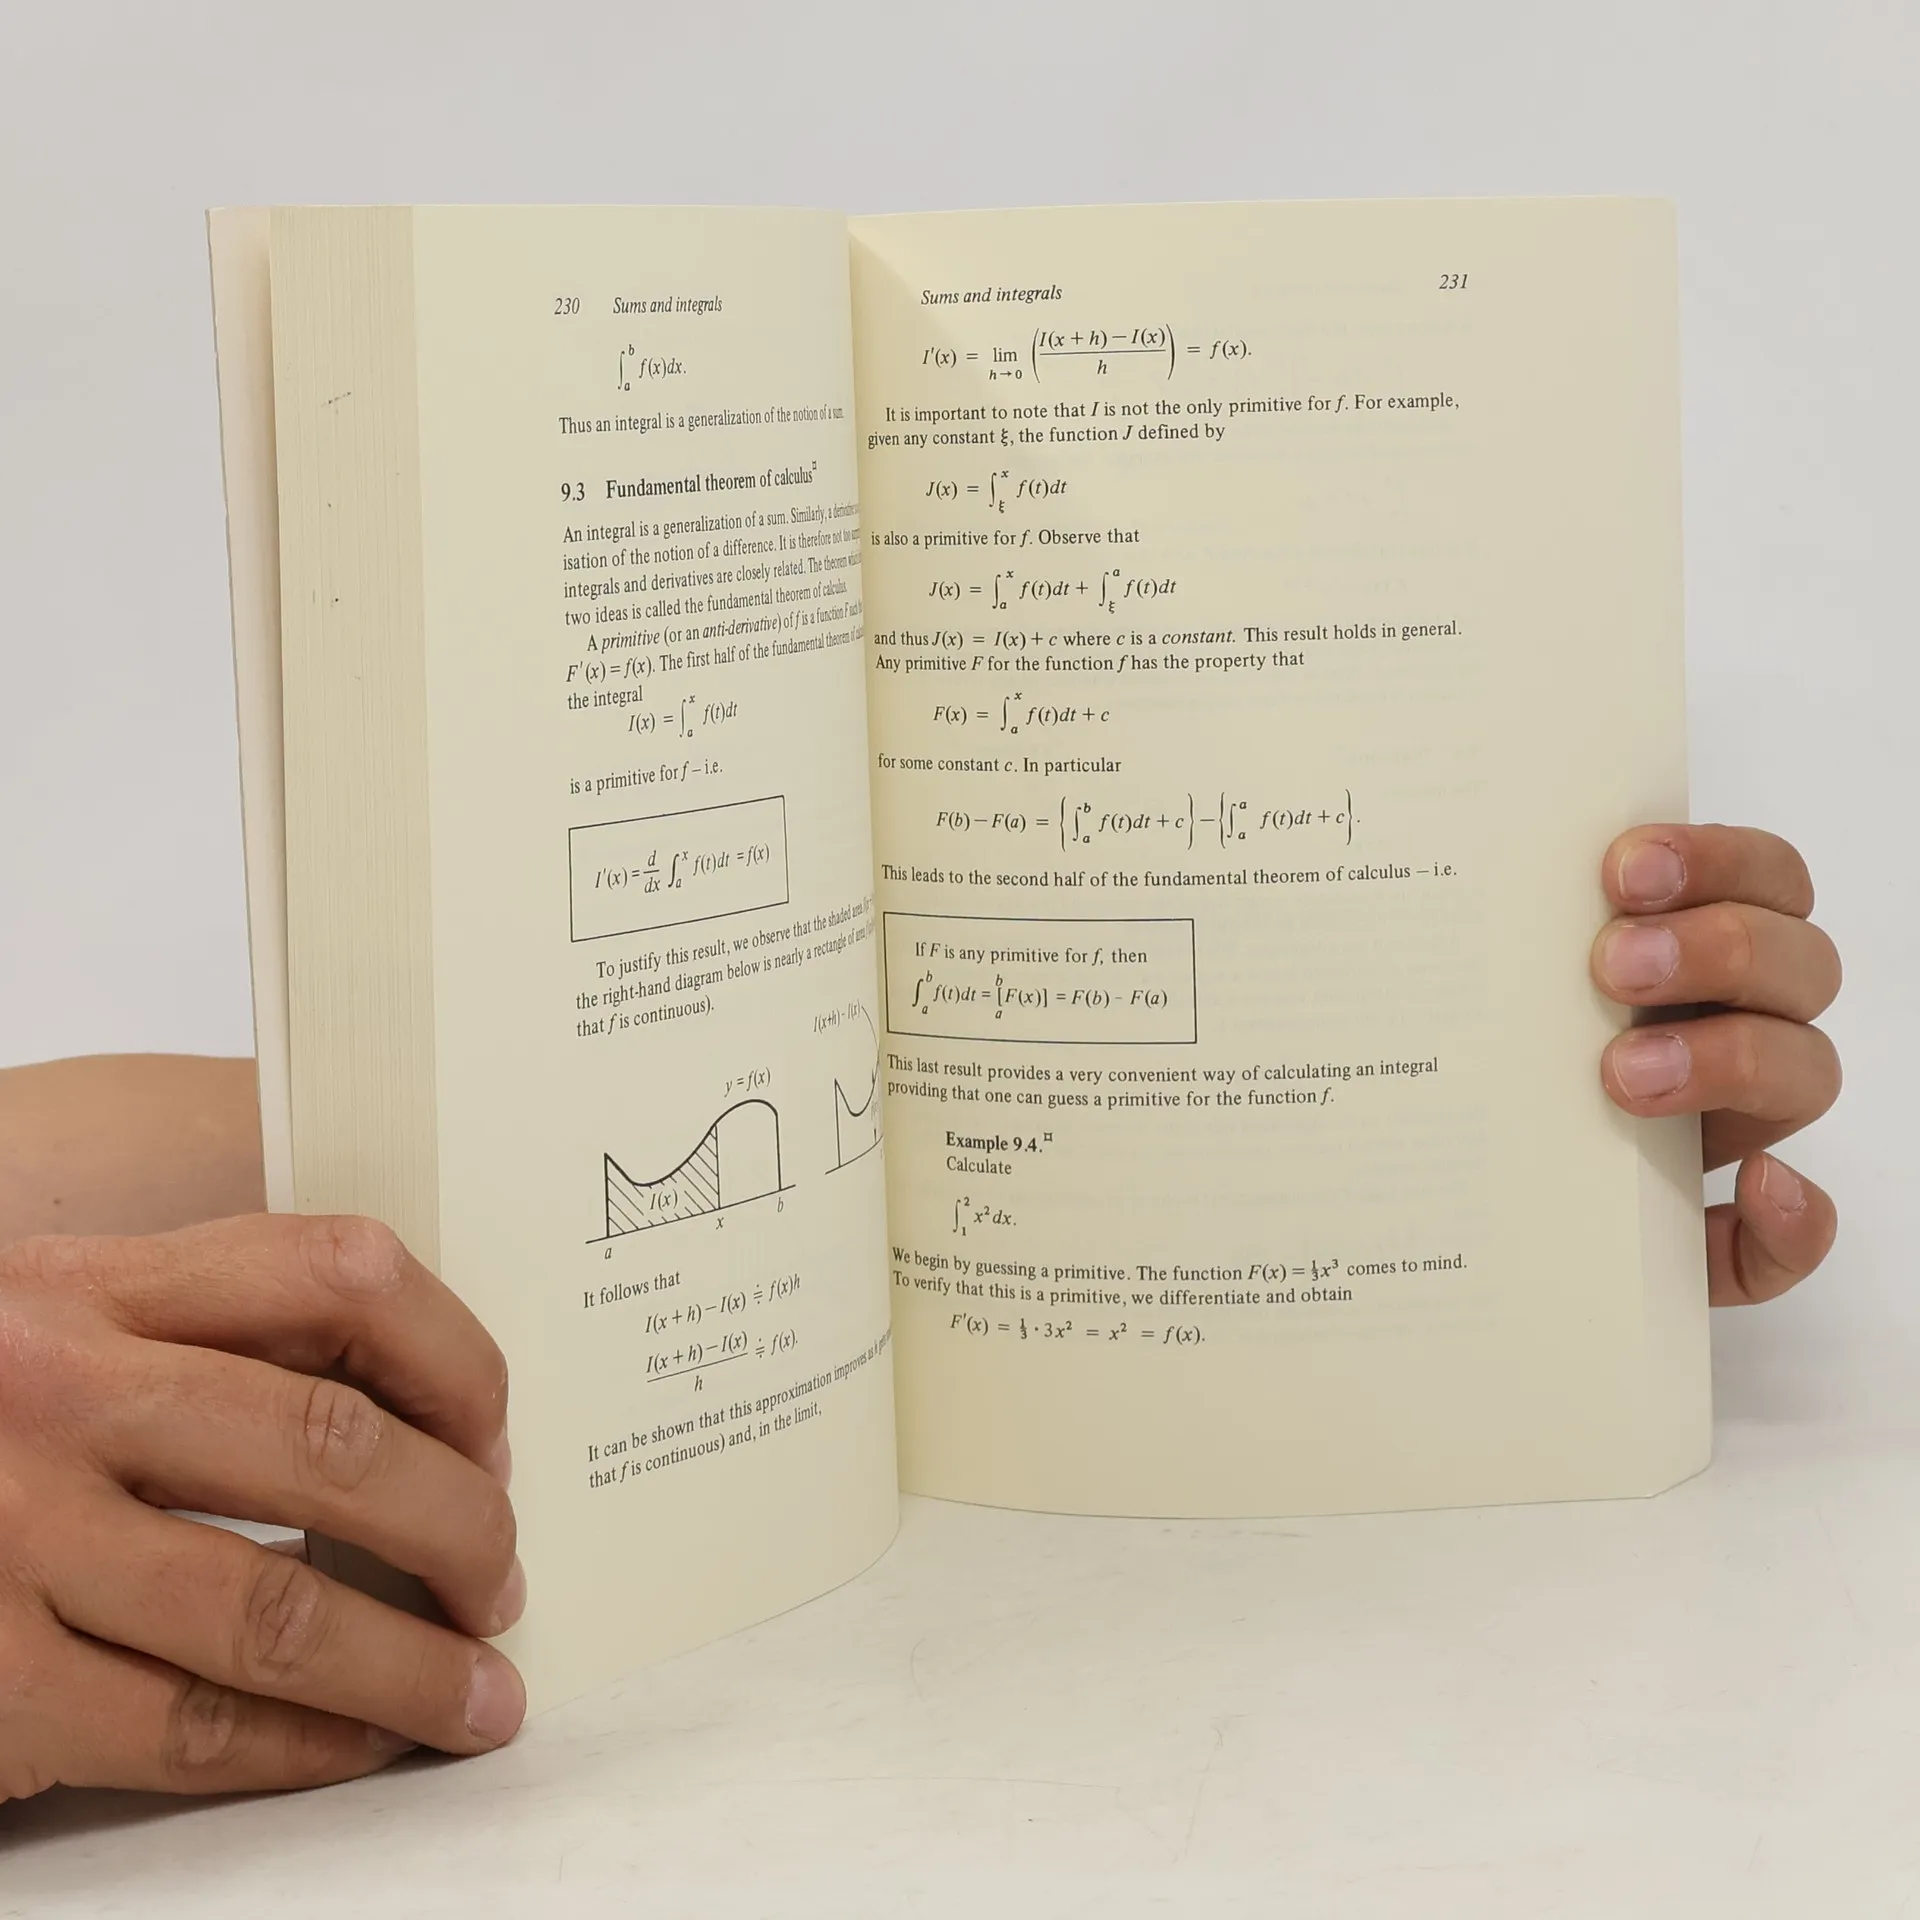 230 Sums and integrals
∫_a^b f(x)dx.
Thus an integral is a generalization of the notion of a sum.
9.3 Fundamental theorem of calculus¤
An integral is a generalization of a sum. Similarly, a derivative
isation of the notion of a difference. It is therefore not too
integrals and derivatives are closely related. The theorem
two ideas is called the fundamental theorem of calculus.
A primitive (or an anti-derivative) of f is a function F such
F′(x) = f(x). The first half of the fundamental theorem of
the integral
I(x) = ∫_a^x f(t)dt
is a primitive for f – i.e.
I′(x) = d/dx ∫_a^x f(t)dt = f(x)
To justify this result, we observe that the shaded area
the right-hand diagram below is nearly a rectangle of area
that f is continuous).
I(x+h) – I(x)
y = f(x)
I(x)
a x b
It follows that
I(x + h) – I(x) ≑ f(x)h
(I(x + h) – I(x))/h ≑ f(x).
It can be shown that this approximation improves as h
that f is continuous) and, in the limit,
Sums and integrals 231
I′(x) = lim_{h→0} ((I(x + h) – I(x))/h) = f(x).
It is important to note that I is not the only primitive for f. For example,
given any constant ξ, the function J defined by
J(x) = ∫_ξ^x f(t)dt
is also a primitive for f. Observe that
J(x) = ∫_a^x f(t)dt + ∫_ξ^a f(t)dt
and thus J(x) = I(x) + c where c is a constant. This result holds in general.
Any primitive F for the function f has the property that
F(x) = ∫_a^x f(t)dt + c
for some constant c. In particular
F(b) – F(a) = {∫_a^b f(t)dt + c} – {∫_a^a f(t)dt + c}.
This leads to the second half of the fundamental theorem of calculus – i.e.
If F is any primitive for f, then
∫_a^b f(t)dt = _a^b[F(x)] = F(b) - F(a)
This last result provides a very convenient way of calculating an integral
providing that one can guess a primitive for the function f.
Example 9.4.¤
Calculate
∫_1^2 x² dx.
We begin by guessing a primitive. The function F(x) = ⅓x³ comes to mind.
To verify that this is a primitive, we differentiate and obtain
F′(x) = ⅓ · 3x² = x² = f(x).